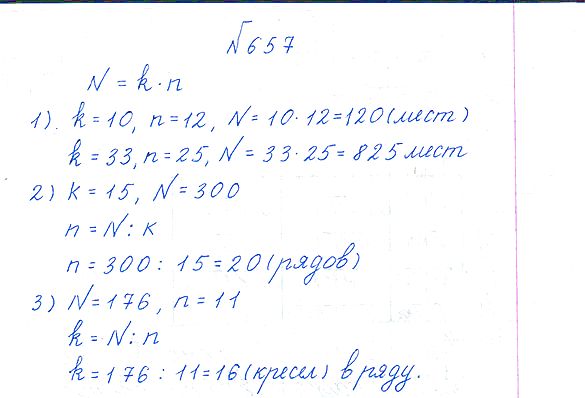 №657
N = k·n
1). k = 10, n = 12, N = 10·12=120(мест)
k = 33, n = 25, N = 33·25 = 825 мест
2) k = 15, N = 300
n = N : k
n = 300 : 15 = 20 (рядов)
3) N = 176, n = 11
k = N : n
k = 176 : 11 = 16 (кресел) в ряду.